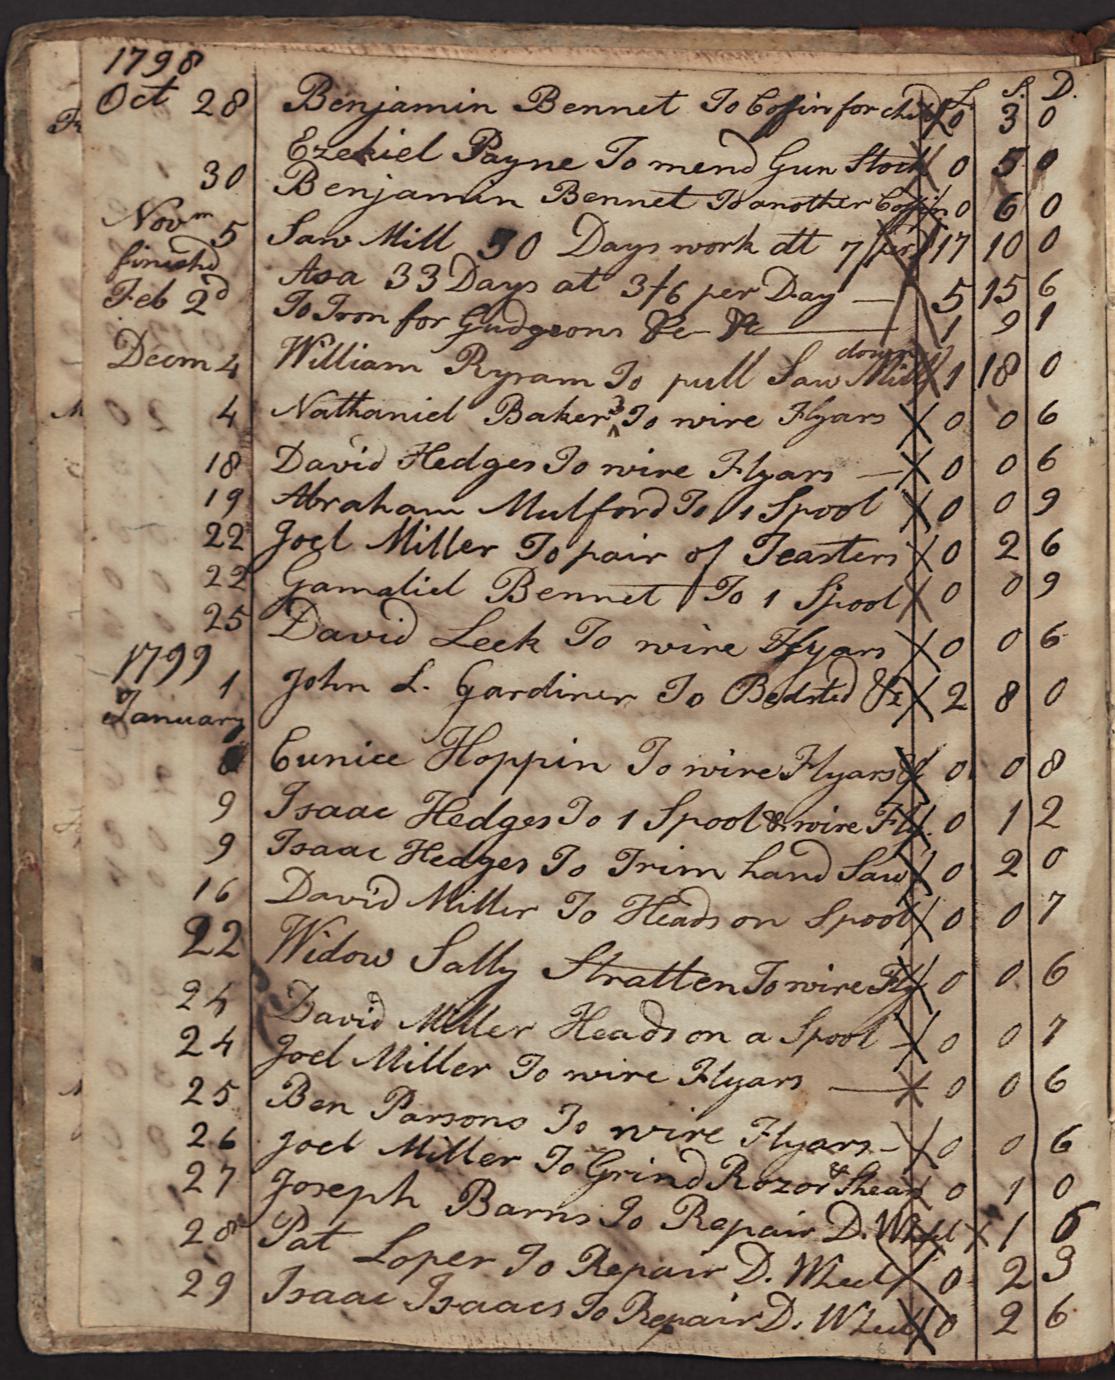 1798
L S. D.
Oct 28 Benjamin Bennet To Coffin for child 0 3 0
Ezekiel Payne To mend Gun Stock 0 5 0
30 Benjamin Bennet To another Coffin 0 6 0
Novm 5 Saw Mill 50 Days work att 7/ per 17 10 0
finishd Asa 33 Days at 3/6 per Day — 5 15 6
Feb 2d To Iron for Gudgeons &c &c — 1 9 1
down
Decm 4 William Ryram To pull Saw Mill 1 18 0
4 Nathaniel Baker 3 To wire Flyars X 0 0 6
18 David Hedges To wire Flyars — X 0 0 6
19 Abraham Mulford To 1 Spool X 0 0 9
22 Joel Miller To pair of Teasters X 0 2 6
22 Gamaliel Bennet To 1 Spool X 0 0 9
25 David Leek To wire Flyars X 0 0 6
1799
1 John L. Gardiner To Bedsted &c X 2 8 0
January
8 Eunice Hoppin To wire Flyars X 0 0 8
9 Isaac Hedges To 1 Spool & wire Fly. 0 1 2
9 Isaac Hedges To Trim hand Saw X 0 2 0
16 David Miller To Heads on Spool X 0 0 7
22 Widow Sally Stratten To wire Fly X 0 0 6
24 David Miller Heads on a Spool X 0 0 7
24 Joel Miller To wire Flyars — X 0 0 6
25 Ben Parsons To wire Flyars - X 0 0 6
26 Joel Miller To Grind Rozor & Shears 0 1 0
27 Joseph Barns To Repair D. Wheel X 1 6
28 Pat Loper To Repair D. Wheel X 0 2 3
29 Isaac Isaacs To Repair D. Wheel X 0 2 6